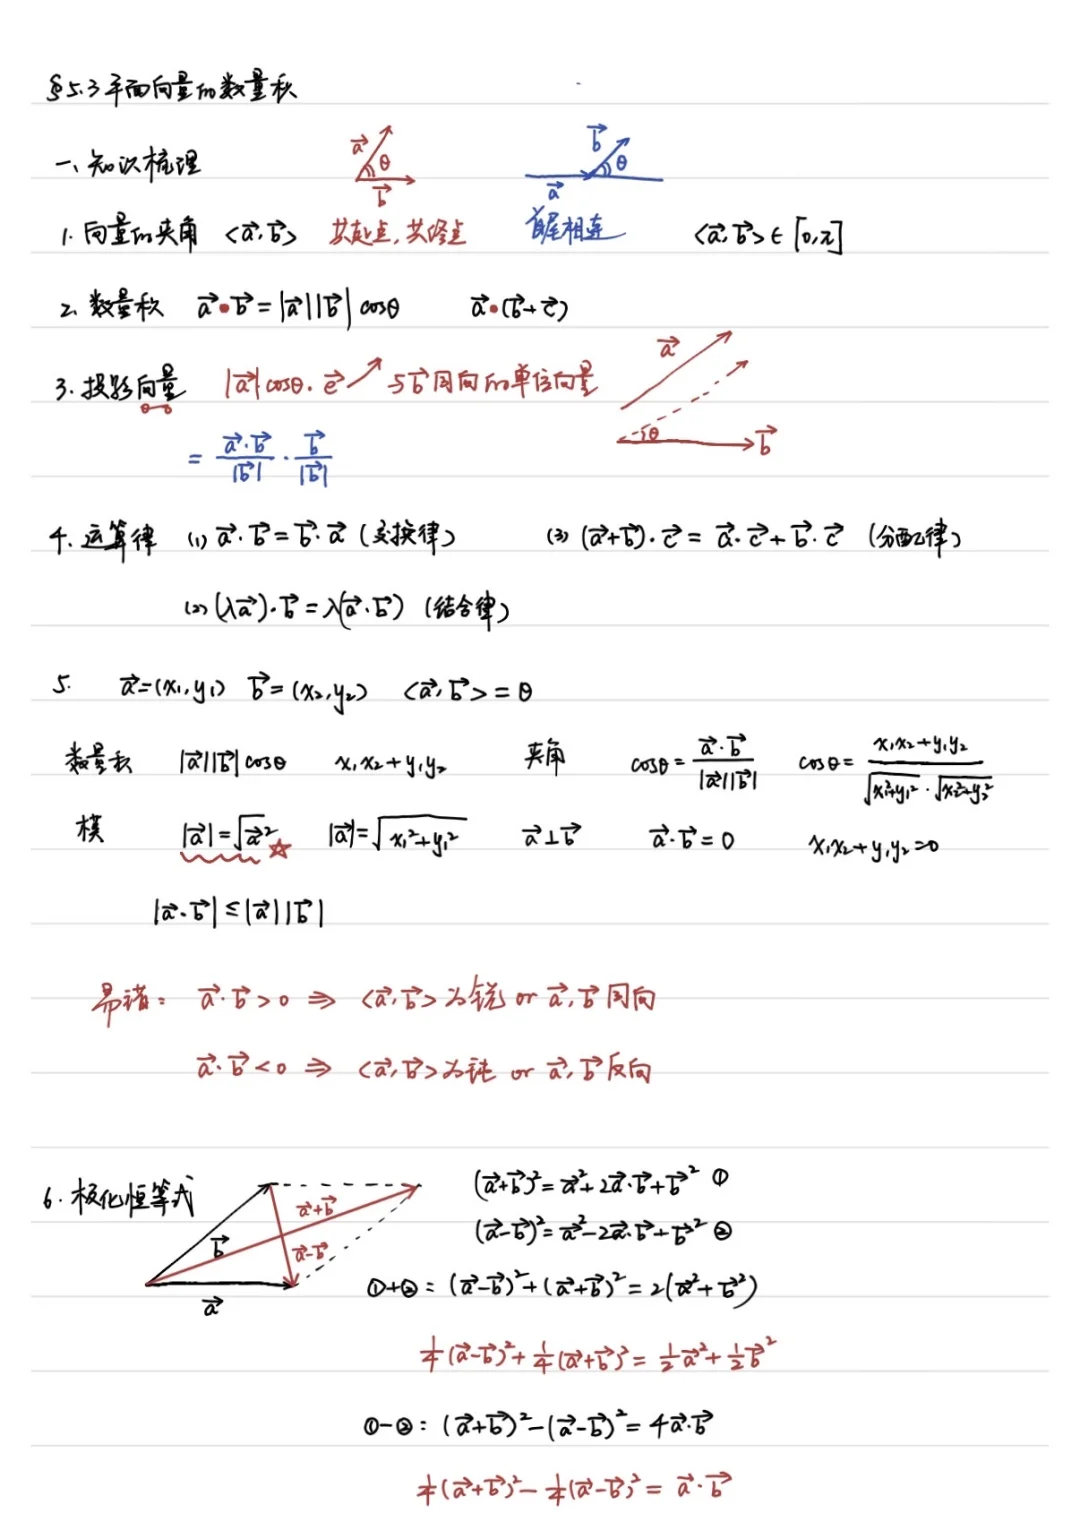 §5.3 平面向量的数量积
一、知识梳理 a⃗ θ b⃗ a⃗ b⃗ θ
1. 向量的夹角 <a⃗,b⃗> 共起点,共终点 首尾相连 <a⃗,b⃗>∈[0,π]
2. 数量积 a⃗·b⃗=|a⃗||b⃗|cosθ a⃗·(b⃗+c⃗)
3. 投影向量 |a⃗|cosθ·e⃗ 与b⃗同向的单位向量 a⃗ θ b⃗
= a⃗·b⃗/|b⃗| · b⃗/|b⃗|
4. 运算律 (1) a⃗·b⃗=b⃗·a⃗ (交换律) (3) (a⃗+b⃗)·c⃗= a⃗·c⃗+b⃗·c⃗ (分配律)
(2) (λa⃗)·b⃗=λ(a⃗·b⃗) (结合律)
5. a⃗=(x₁,y₁) b⃗=(x₂,y₂) <a⃗,b⃗>=θ
数量积 |a⃗||b⃗|cosθ x₁x₂+y₁y₂ 夹角 cosθ=a⃗·b⃗/|a⃗||b⃗| cosθ=x₁x₂+y₁y₂/√(x₁²+y₁²)·√(x₂²+y₂²)
模 |a⃗|=√(a⃗²)☆ |a⃗|=√(x₁²+y₁²) a⃗⊥b⃗ a⃗·b⃗=0 x₁x₂+y₁y₂=0
|a⃗·b⃗|≤|a⃗||b⃗|
易错: a⃗·b⃗>0 ⇒ <a⃗,b⃗>为锐 or a⃗,b⃗同向
a⃗·b⃗<0 ⇒ <a⃗,b⃗>为钝 or a⃗,b⃗反向
6. 极化恒等式 b⃗ a⃗+b⃗ a⃗-b⃗ a⃗
(a⃗+b⃗)²=a⃗²+2a⃗·b⃗+b⃗² ①
(a⃗-b⃗)²=a⃗²-2a⃗·b⃗+b⃗² ②
①+②: (a⃗-b⃗)²+(a⃗+b⃗)²=2(a⃗²+b⃗²)
¼(a⃗-b⃗)²+¼(a⃗+b⃗)²=½a⃗²+½b⃗²
①-②: (a⃗+b⃗)²-(a⃗-b⃗)²=4a⃗·b⃗
¼(a⃗+b⃗)²-¼(a⃗-b⃗)²= a⃗·b⃗